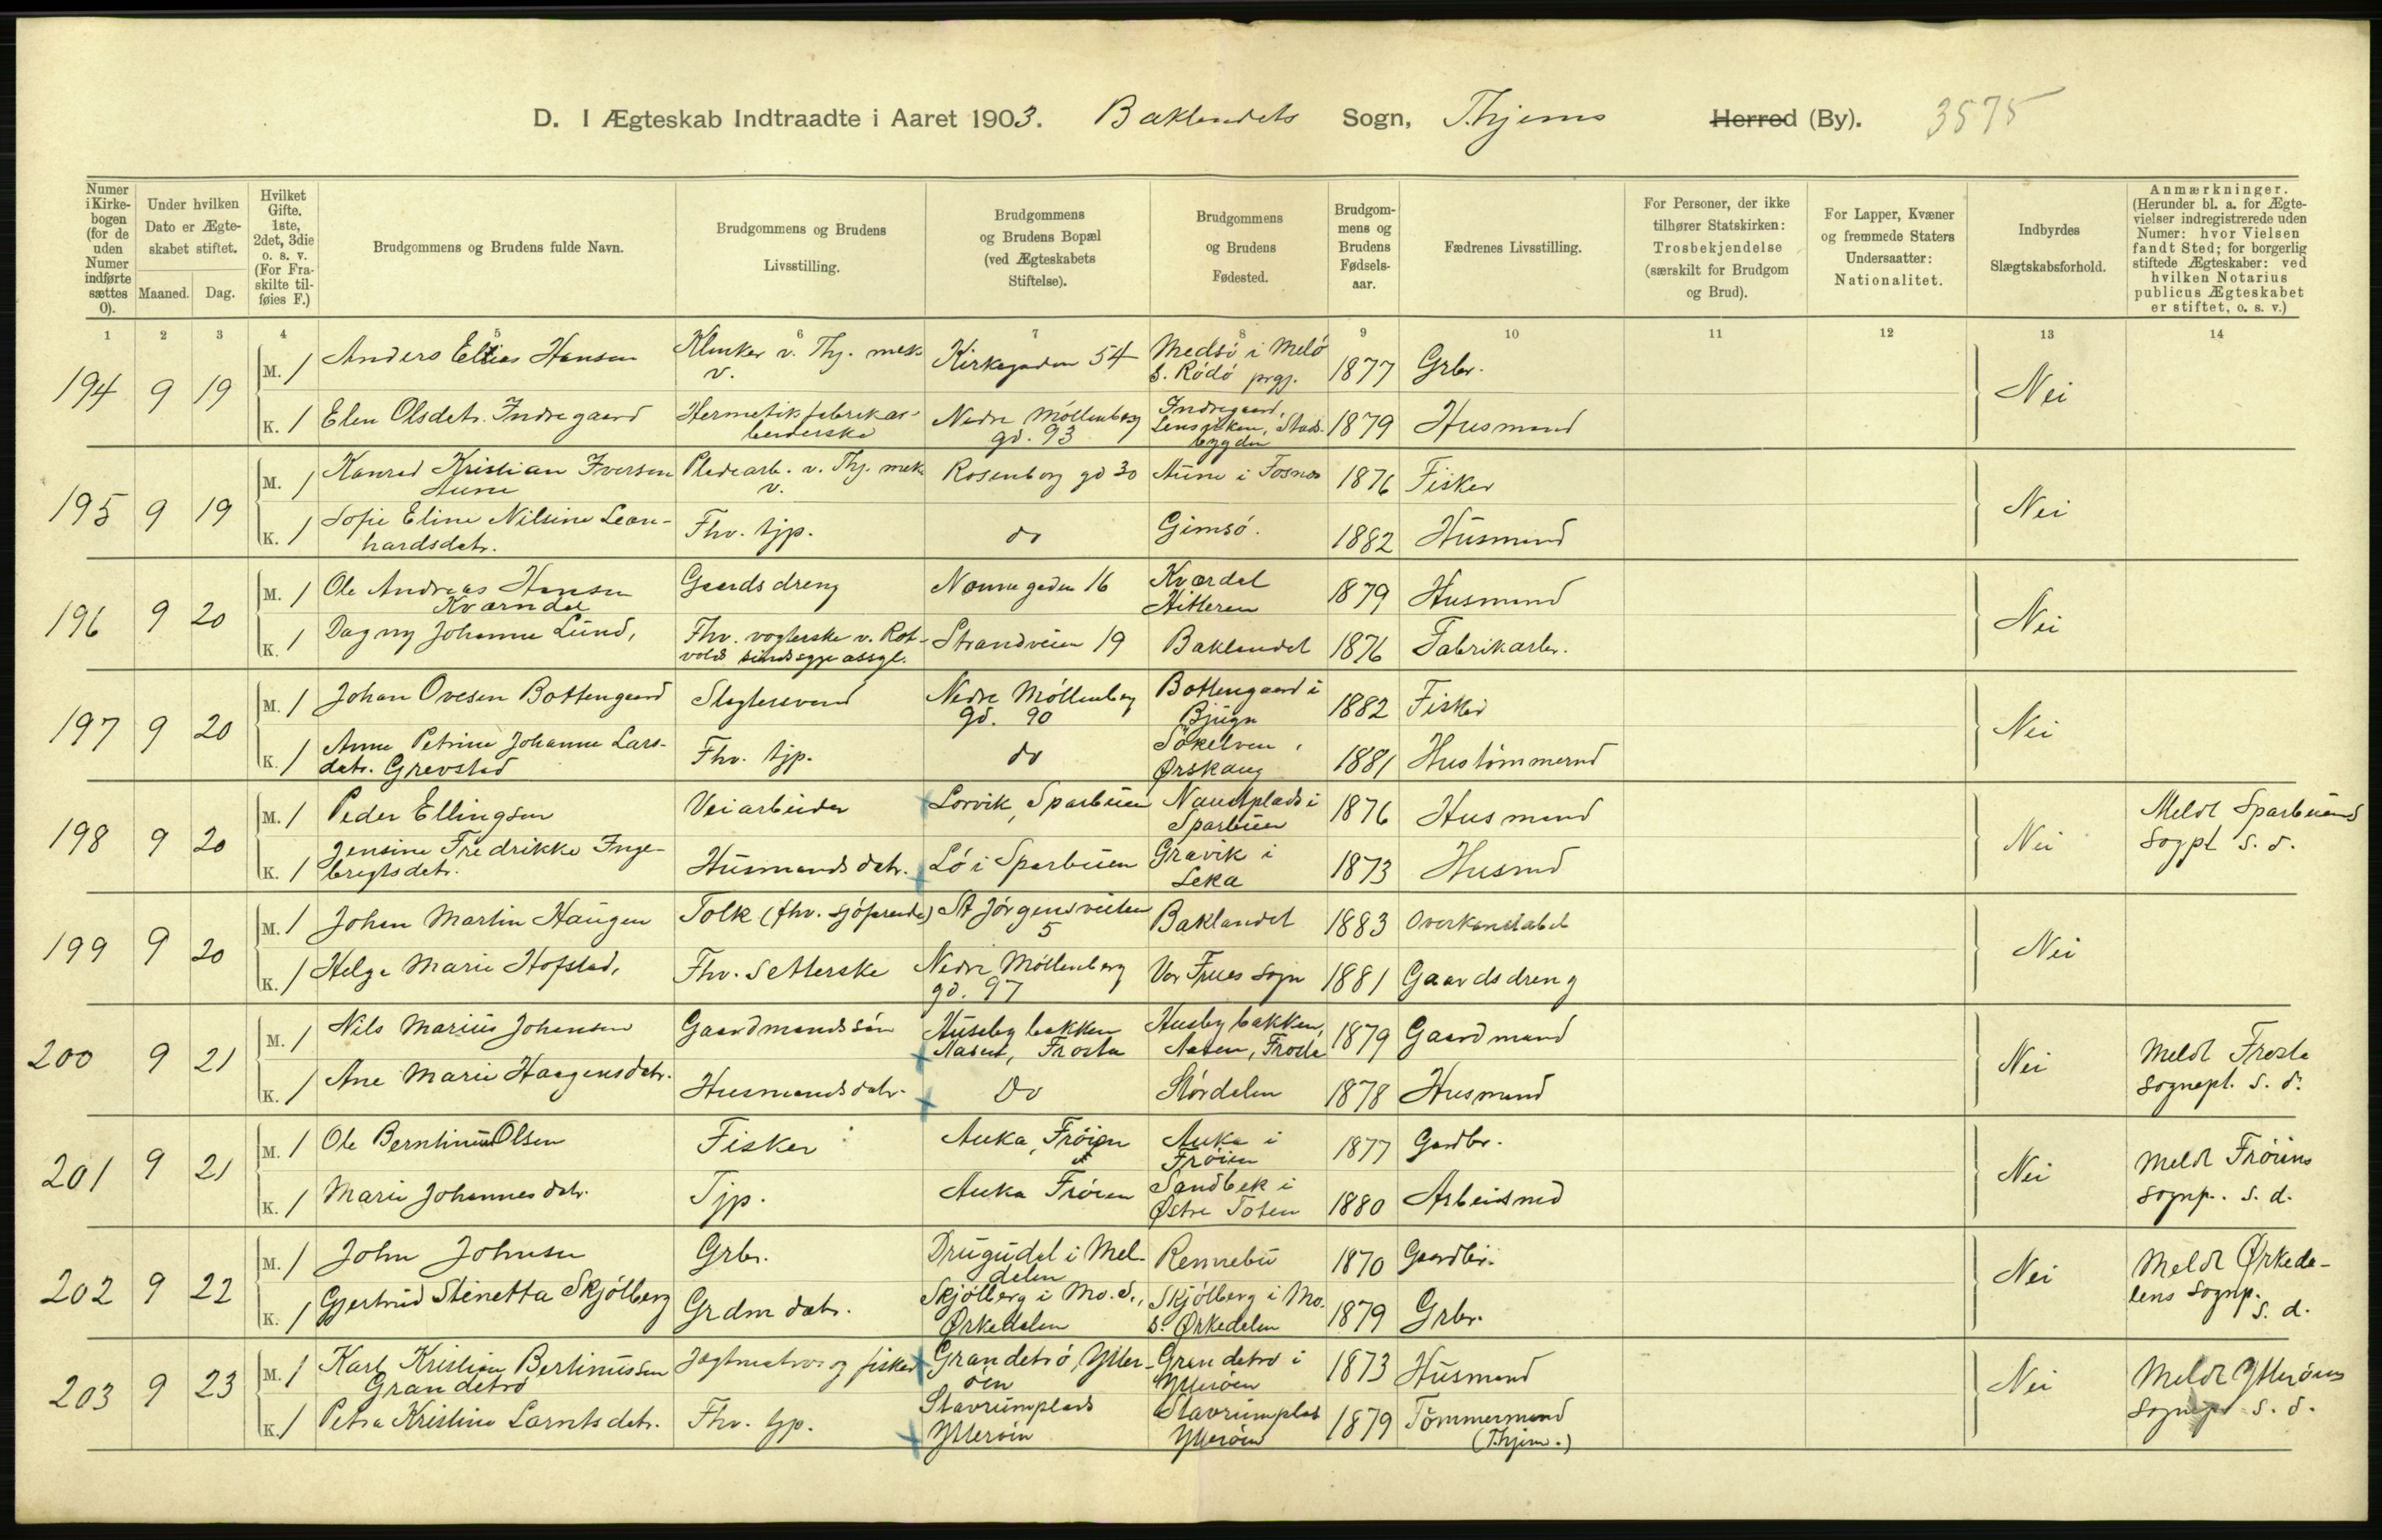 D. I Ægteskab Indtraadte i Aaret 1903. Baklandets Sogn, Thjems Herred (By). 3575
Numer i Kirkebogen (for de uden Numer indførte sættes 0).
Under hvilken Dato er Ægteskabet stiftet.
Maaned. Dag.
Hvilket Gifte. 1ste, 2det, 3die o. s. v. (For Fraskilte tilføies F.)
Brudgommens og Brudens fulde Navn.
Brudgommens og Brudens Livsstilling.
Brudgommens og Brudens Bopæl (ved Ægteskabets Stiftelse).
Brudgommens og Brudens Fødested.
Brudgommens og Brudens Fødselsaar.
Fædrenes Livsstilling.
For Personer, der ikke tilhører Statskirken: Trosbekjendelse (særskilt for Brudgom og Brud).
For Lapper, Kvæner og fremmede Staters Undersaatter: Nationalitet.
Indbyrdes Slægtskabsforhold.
Anmærkninger. (Herunder bl. a. for Ægtevielser indregistrerede uden Numer: hvor Vielsen fandt Sted; for borgerlig stiftede Ægteskaber: ved hvilken Notarius publicus Ægteskabet er stiftet, o. s. v.)
1 2 3 4 5 6 7 8 9 10 11 12 13 14
194 9 19 M. 1 Anders Elias Hansen Klinker v. Thj. mek v. Kirkegaden 54 Medsö i Melö s. Rödö prgj. 1877 Grbr. Nei
K. 1 Elen Olsdetr. Indregaard Hermetikfabrikarbeiderske Nedre Möllenberg gd. 93 Indregaard, Lensviken, Stadsbygden 1879 Husmand
195 9 19 M. 1 Konrad Kristian Iversen Aune Pladearb. v. Thj. mek v. Rosenborg gd 30 Aune i Fosnes 1876 Fisker Nei
K. 1 Sofie Eline Nilsine Leonhardsdatr. Fhv. tjp. do Gimsö. 1882 Husmand
196 9 20 M. 1 Ole Andreas Hansen Kværndal Gaardsdreng Nonnegaden 16 Kværdal Hitteren 1879 Husmand Nei
K. 1 Dagny Johanne Lund, Fhv. vogterske v. Rotvolds sindssygeassyl. Strandveien 19 Baklandet 1876 Fabrikarbr.
197 9 20 M. 1 Johan Ovesen Bottengaard Slagtersvend Nedre Möllenberg gd. 90 Bottengaard i Bjugn 1882 Fisker Nei
K. 1 Anne Petrine Johanne Larsdatr. Grevstad Fhv. tjp. do Sökelven, Ørskaug 1881 Hustömmermd
198 9 20 M. 1 Peder Ellingsen Veiarbeider Lorvik, Sparbuen Naustplads i Sparbuen 1876 Husmand Nei Meldt Sparbuens Sogpt s. d.
K. 1 Jensine Fredrikke Ingebrigtsdatr. Husmandsdatr. Lö i Sparbuen Gravik i Leka 1873 Husmd
199 9 20 M. 1 Johan Martin Haugen Tolk (fhv. sjöfarende) St Jörgensveiten 5 Baklandet 1883 Overkonstabel Nei
K. 1 Helga Marie Hofstad, Fhv. Setterske Nedre Möllenberg gd. 97 Vor Frues sogn 1881 Gaardsdreng
200 9 21 M. 1 Nils Marius Johansen Gaardmandssön Husebybakken Aasen, Frosta Husbybakken, Aasen, Frosta 1879 Gaardmand Nei Meldt Frosta Sognept. s. d.
K. 1 Ane Marie Haagensdatr. Husmandsdatr. Do Stördalen 1878 Husmand
201 9 21 M. 1 Ole Berntinus Olsen Fisker Auka, Fröien Auka i Fröien 1877 Gardbr. Nei Meldt Fröiens sognp. s. d.
K. 1 Marie Johannesdatr. Tjp. Auka Fröien Sandbek i Østre Toten 1880 Arbeidsmd
202 9 22 M. 1 John Johnsen Grbr. Drugudal i Meldalen Rennebu 1870 Gaardbr. Nei Meldt Ørkedalens Sognp. s. d.
K. 1 Gjertrud Stenetta Skjölberg Grdm datr. Skjölberg i Mo. S., Ørkedalen Skjölberg i Mo. s. Ørkedalen 1879 Grbr.
203 9 23 M. 1 Karl Kristian Bertinussen Grandetrö Jagtmatros og fisker Grandetrö, Ytteröen Grandetrö i Ytteröen 1873 Husmand Nei Meldt Ytteröens Sognept s. d.
K. 1 Petra Kristine Larntsdatr. Fhv. tjp. Stavrumplads Ytteröen Stavrumplads Ytteröen 1879 Tömmermand (Thjem.)